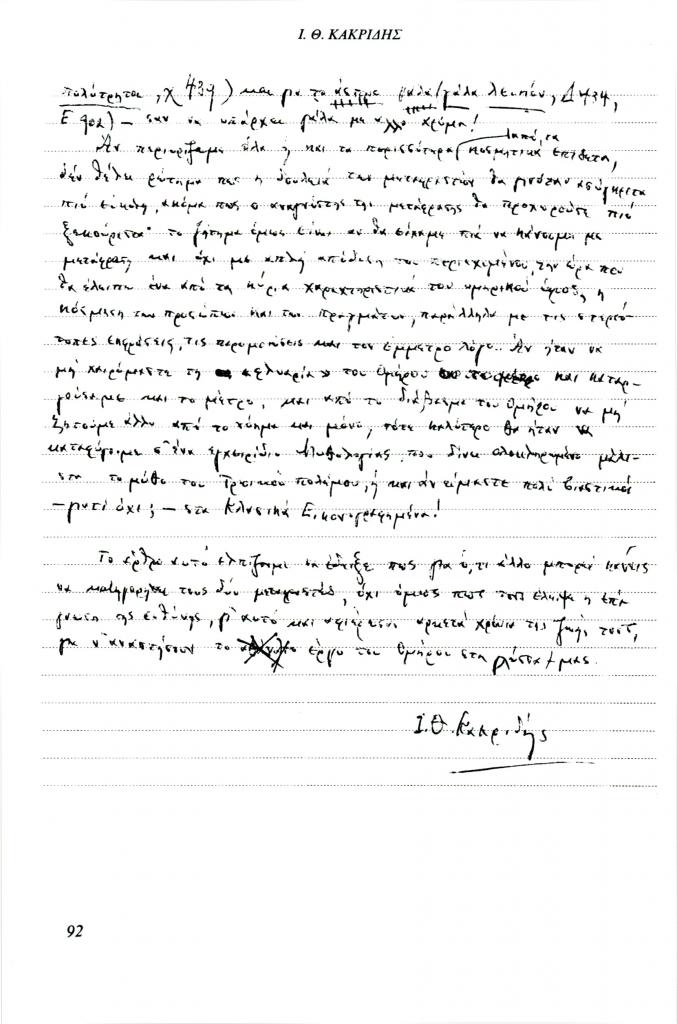 Ι. Θ. ΚΑΚΡΙΔΗΣ
πολύτρητοι, χ 439) και για το άσπρο γάλα (γάλα λευκόν, Δ 434,
Ε 902) – σαν να υπάρχει γάλα με άλλο χρώμα!
από τα
Αν περιορίζαμε όλα ή και τα περισσότερα κοσμητικά επίθετα,
δεν θέλει ρώτημα πως η δουλειά των μεταφραστών θα γινόταν ασύγκριτα
πιο εύκολη, ακόμα πως ο αναγνώστης της μετάφρασης θα προχωρούσε πιο
ξεκούραστα· το ζήτημα όμως είναι αν θα είχαμε πια να κάνουμε με
μετάφραση και όχι με απλή απόδοση του περιεχομένου, την ώρα που
θα έλειπε ένα από τα κύρια χαρακτηριστικά του ομηρικού έπους, η
κόσμηση των προσώπων και των πραγμάτων, παράλληλα με τις στερεό-
τυπες εκφράσεις, τις παρομοιώσεις και τον έμμετρο λόγο. Αν ήταν να
μη χαιρόμαστε τη «φλυαρία» του Ομήρου και καταρ-
γούσαμε και το μέτρο, και από το διάβασμα του Ομήρου να μη
ζητούμε άλλο από το νόημα και μόνο, τότε καλύτερο θα ήταν να
καταφύγουμε σ' ένα εγχειρίδιο Μυθολογίας, που δίνει ολοκληρωμένο μάλι-
στα το μύθο του Τρωικού πολέμου, ή και αν είμαστε πολύ βιαστικοί
– γιατί όχι; – στα Κλασικά Εικονογραφημένα!
Το άρθρο αυτό ελπίζουμε να έδειξε πως για ό,τι άλλο μπορεί κανείς
να κατηγορήσει τους δύο μεταφραστές, όχι όμως πως τους έλειψε η επί-
γνωση της ευθύνης, γι' αυτό και αφιέρωσαν αρκετά χρόνια της ζωής τους,
για ν' αναστήσουν το έργο του Ομήρου στη γλώσσα μας.
Ι. Θ. Κακριδής
92